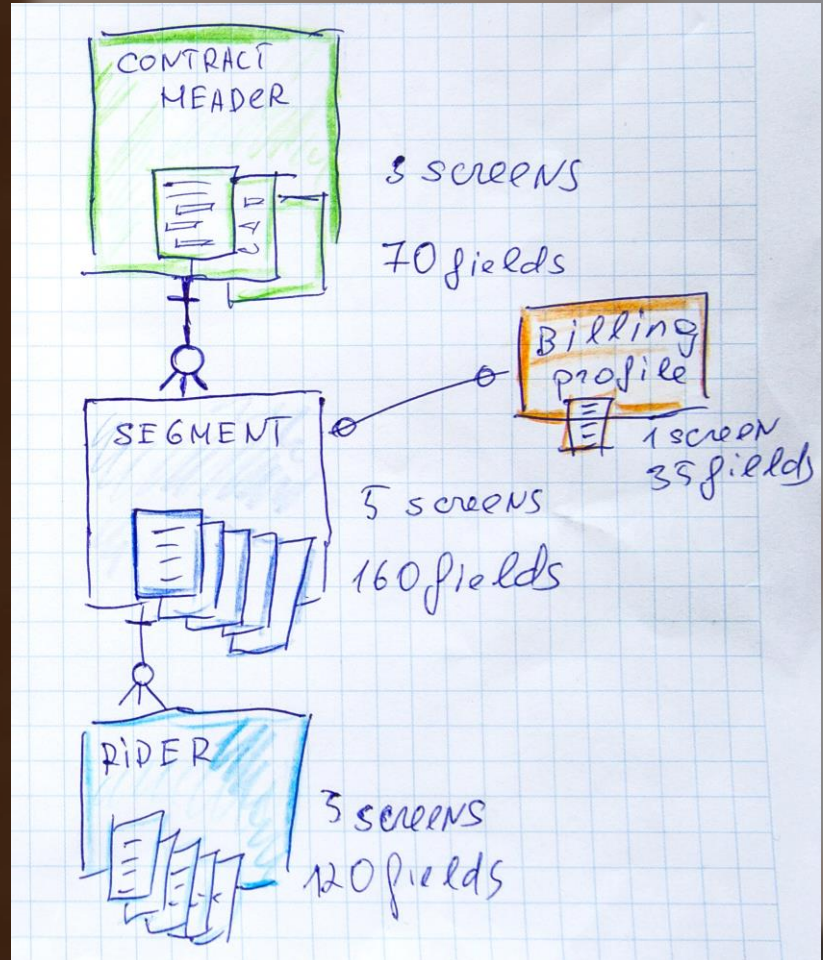 CONTRACT
MEADER
3 screens
70 fields
Billing
profile
1 screen
35 fields
SEGMENT
5 screens
160 fields
RIDER
3 screens
120 fields